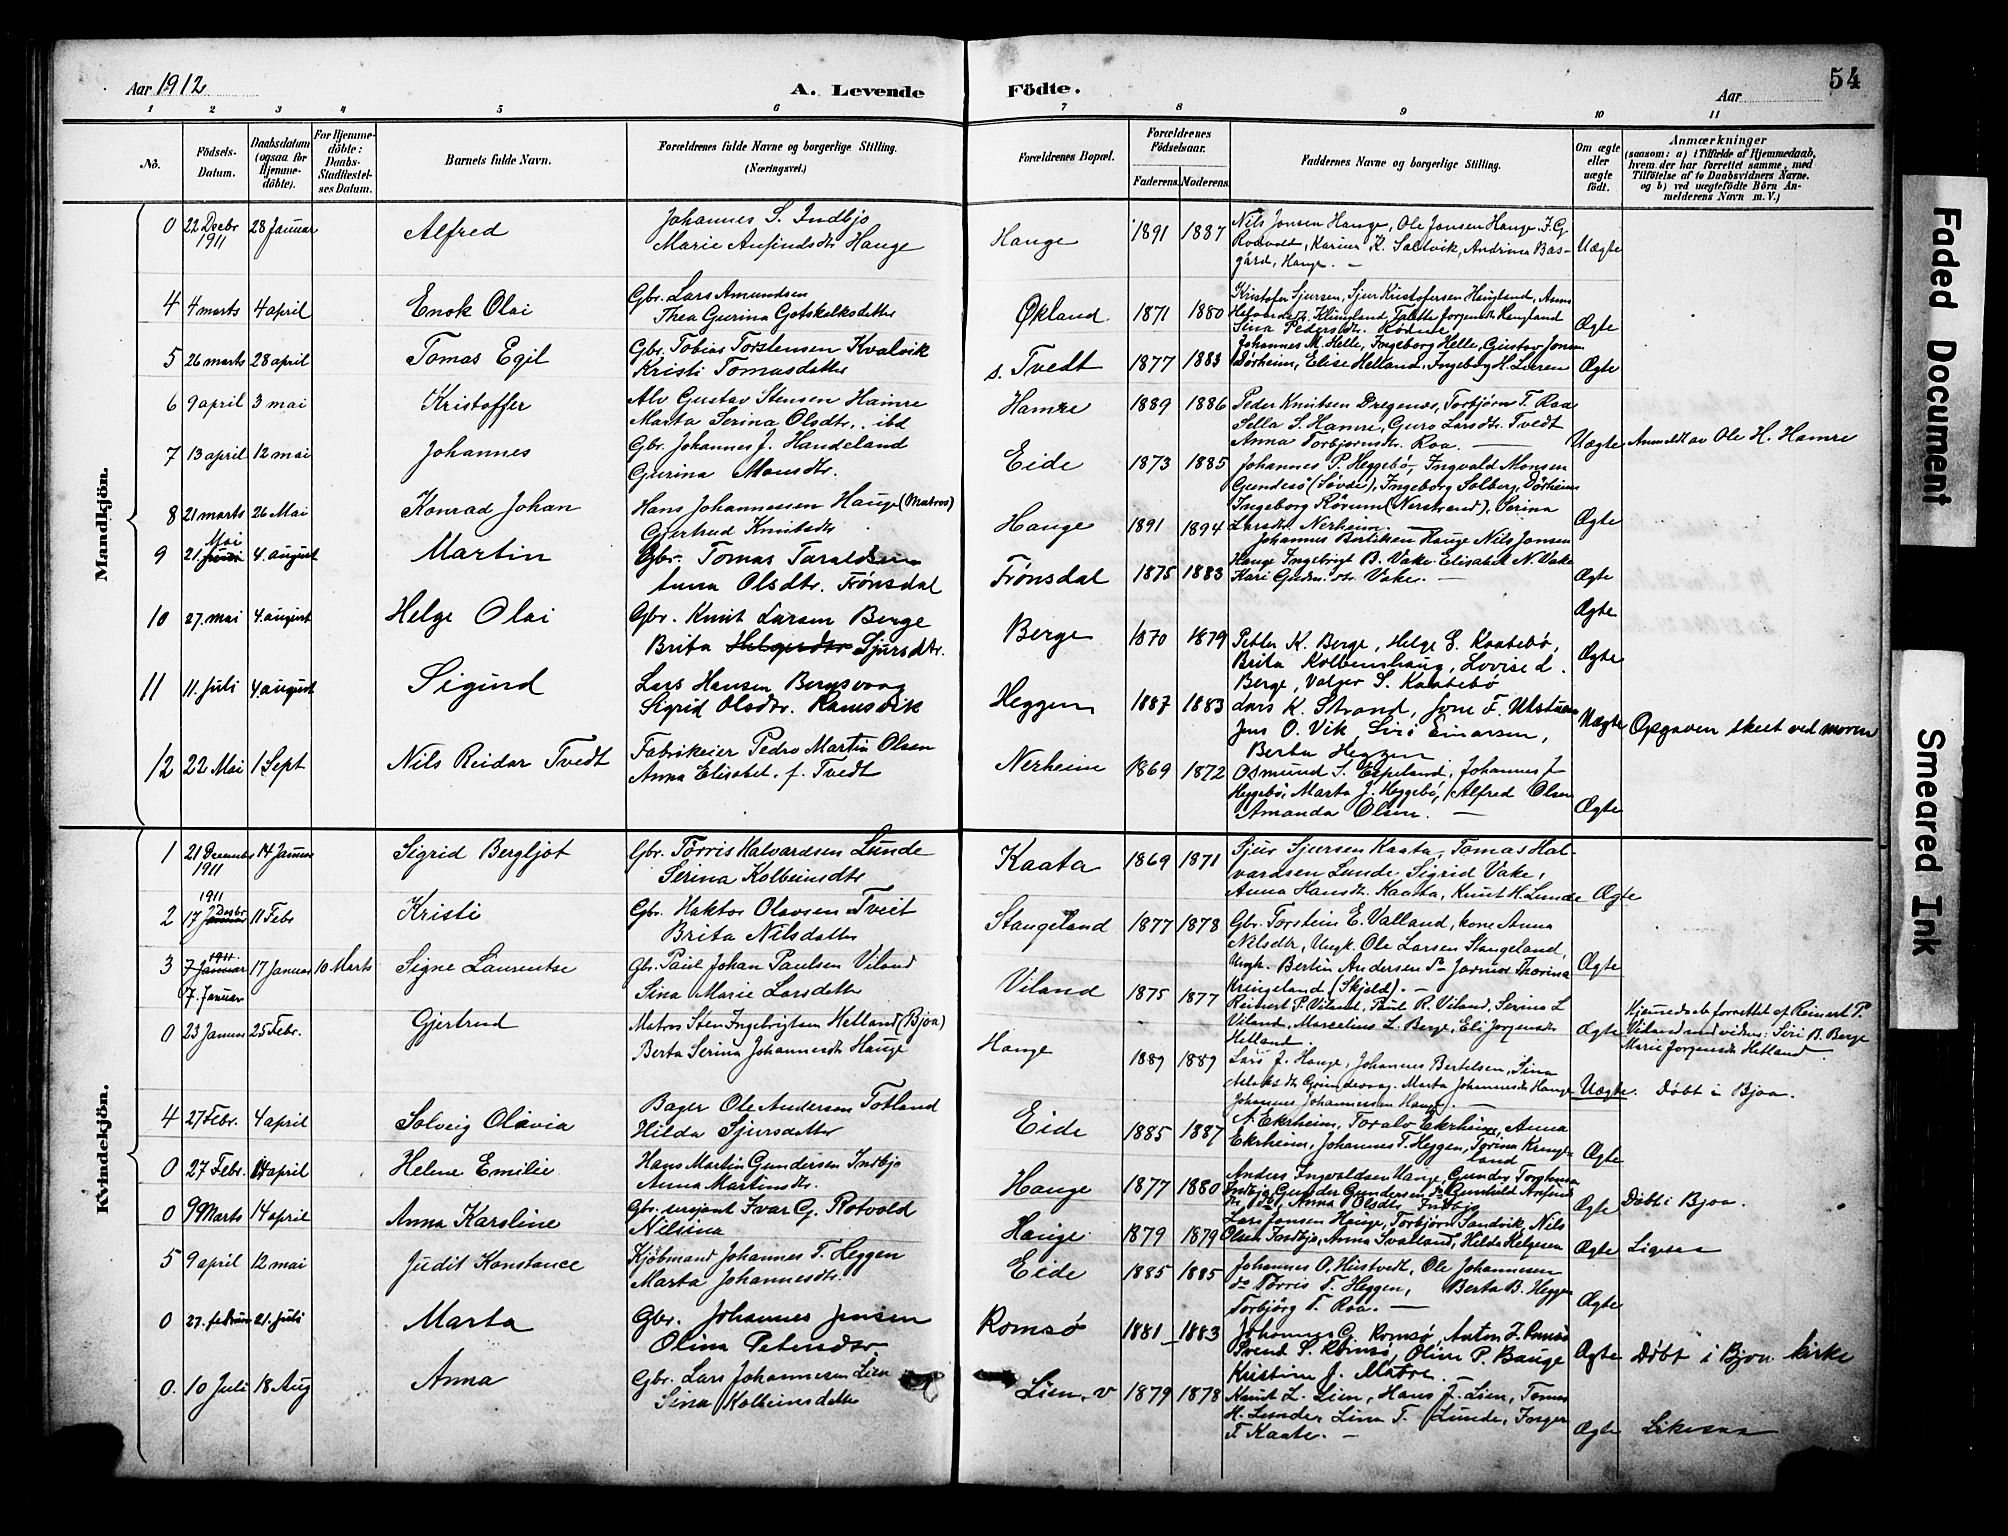 Aar 1912
A. Levende
Födte.
Aar
54
1 2 3 4 5 6 7 8 9 10 11
No.
Födsels-Datum.
Daabsdatum (ogsaa for Hjemme-döbte).
For Hjemme-döbte: Daabs-Stadfæstel-ses Datum.
Barnets fulde Navn.
Forældrenes fulde Navne og borgerlige Stilling. (Næringsvei.)
Forældrenes Bopæl.
Forældrenes Födselsaar.
Faderens. Moderens.
Faddernes Navne og borgerlige Stilling.
Om ægte eller uægte födt.
Anmærkninger
(saasom: a) i Tilfælde af Hjemmedaab,
hvem der har forrettet samme, med
Tilföielse af to Daabsvidners Navne.
og b) ved uægtefödte Börn An-
melderens Navn m. V.)
Mandkjön.
0 22 Decbr 1911 28 Januar Alfred
Johannes S. Indbjo
Marie Anfindsdtr Hauge
Hauge 1891 1887
Nils Jonsen Hauge, Ole Jonsen Hauge, I. G.
Rodvold, Karina K. Saltvik, Andrina Bas-
gård, Hauge. —
Uægte
4 4 marts 4 april Enok Olai
Gbr. Lars Amundsen
Thea Gurina Gotskelksdatter
Økland 1871 1880
Kristofer Sjursen, Sjur Kristofersen Haugland, Anna
Klungland
Sina Pedersdtr.
Ægte
5 26 marts 28 april Tomas Egil
Gbr. Tobias Torstensen Kvalvik
Kristi Tomasdatter
s. Tvedt 1877 1883
Johannes M. Helle, Ingeborg Helle, Gustav Jonsen
Dörheim, Elise Helland, Ingeborg H. Lieren
Ægte
6 9 april 3 mai Kristoffer
Alv Gustav Stensen Hamre
Marta Serina Olsdtr. ibd
Hamre 1889 1886
Peder Knutsen Dregenæs, Torbjörn T. Roa
Sella S. Hamre, Guro Larsdtr. Tvedt
Anna Torbjornsdtr. Roa. —
Uægte Anmeldt av Ole H. Hamre
7 13 april 12 mai Johannes
Gbr. Johannes J. Handeland
Gurina Monsdtr.
Eide 1873 1885
Johannes P. Heggebö, Ingvald Monsen
Gundersö (Sövde), Ingeborg Solberg, Dörheim
Ingeborg Rörum (Nerstrand), Serina
Larsdtr. Nerheim. —
Ægte
8 21 marts 26 Mai Konrad Johan
Hans Johannessen Hauge (Matros)
Gjertrud Knutsdtr
Hauge 1891 1894
Johannes Bertilsen Hauge Nils Jonsen
Hauge Ingebrigt B. Vake Elisabet N. Vake
Kari Vake. —
Ægte
9 21. Mai 4. august Martin
Gbr. Tomas Taraldsen
Anna Olsdtr. Frönsdal
Frönsdal 1875 1883
Ægte
10 27. mai 4. august Helge Olai
Gbr. Knut Larsen Berge
Brita Helgesdtr Sjursdtr.
Berge 1870 1879
Petter K. Berge, Helge E. Kaatebö,
Brita Kolbenshaug, Lovise d.
Berge, Valger S. Kaatebö
Ægte
11 11. Juli 4. august Sigurd
Lars Hansen Bergsvaag
Sigrid Olsdtr. Ramsvik
Heggen 1887 1883
Lars K. Strand, Jone F. Utstuen
Jens O. Vik, Siri Einarsen,
Berta Heggen
Uægte Opgaven skeet ved moren
12 22 Mai 1 Sept Nils Reidar Tvedt
Fabrikeier Pedro Martin Olsen
Anna Elisabet. f. Tvedt
Nerheim 1869 1872
Osmund S. Espeland, Johannes J.
Heggebö, Marta J. Heggebö, Alfred Olsen
Amanda Olsen. —
Ægte
Kvindekjön.
1 21 Decembr 1911 14 Januar Sigrid Bergljot
Gbr. Torris Halvardsen Lunde
Serina Kolbeinsdtr
Kaata 1869 1871
Sjur Sjursen Kaata, Tomas Hal-
vardsen Lunde Sigrid Vake,
Anna Hansdtr. Kaata, Knut H. Lunde
Ægte
2 17 Decbr 1911 11 Febr Kristi
Gbr. Haktor Olavsen Tveit
Brita Nilsdatter
Stangeland 1877 1878
Gbr. Torstein E. Valland, kone Anna
Nilsdtr, Ungk. Ole Larsen Stangeland,
Ungk. Bertin Andersen Thorina
Kringeland (Skjold). —
Ægte
3 7 Januar 1911 7. Januar 17 Januar 10 Marts Signe Laurentse
Gbr. Paul Johan Paulsen Viland
Sina Marie Larsdatter
Viland 1875 1877
Reinert P. Viland, Paul R. Viland, Serina L
Viland, Marselius L. Berge, Eli Jorgensdtr
Hetland.
Ægte
Hjemmedaab forrettet af Reinert P.
Viland med vidner: Siri B. Berge
Marie Jorgensdtr Hetland.
0 23 Januar 25 Febr. Gjertrud
Matros Sten Ingebrigtsen Helland (Bjoa)
Berta Serina Johannesdtr Hauge
Hauge 1889 1889
Lars J. Hauge, Johannes Bertelsen, Sina
Aslaksdtr Grindevaag, Marta Johannesdtr Hauge
Johannes Johannessen Hauge. —
Uægte. Döbt i Bjoa.
4 27 Febr. 4 april Solveig Olavia
Bager Ole Andersen Totland
Hilda Sjursdatter
Eide 1885 1887
A. Ekrheim, Toralv Ekrheim, Anna
Ekrheim, Johannes T. Heggen, Torina Kringe-
land
Ægte
0 27 Febr. 14 april Helene Emilie
Hans Martin Gundersen Indbjo
Anna Martinsdtr.
Hauge 1877 1880
Anders Ingvaldsen Hauge, Gunder Torgersen
Indbjo, Gunder Gundersen do Gunhild
Anna Olsdtr Indbjo
Ægte Döbt i Bjoa.
0 9 Marts 14 april Anna Karoline
Gbr. sersjant Ivar G. Rotvold
Nilsina
Hauge 1879 1879
Lars Jonsen Hauge, Torbjörn Sandvik, Nils
Olsen Indbjo, Anna Svalland, Hilda Helgesen
Ægte Ligesaa
5 9 april 12 mai Judit Konstance
Kjöbmand Johannes T. Heggen
Marta Johannesdtr.
Eide 1885 1885
Johannes O. Hustvedt, Ole Johannesen
do Torris T. Heggen, Berta B. Heggen
Torbjörg T. Roa. —
Ægte
0 27. februar 21. juli Marta
Gbr. Johannes Jensen
Olina Petersdtr
Romsö 1881 1883
Johannes G. Romsö, Anton J. Romsö
Svend S. Romsö, Oline P. Bauge
Kristine J. Matre. —
Ægte Döbt i Bjoa kirke
0. 10 Juli 18 Aug Anna
Gbr. Lars Johannesen Lien
Sina Kolbeinsdatter
Lien, v 1879 1878
Knut L. Lien, Hans J. Lien, Tomas
H. Lunde, Lina T. Lunde, Inger
T. Kaate. —
Ægte Likesaa
Faded Document
Smeared Ink